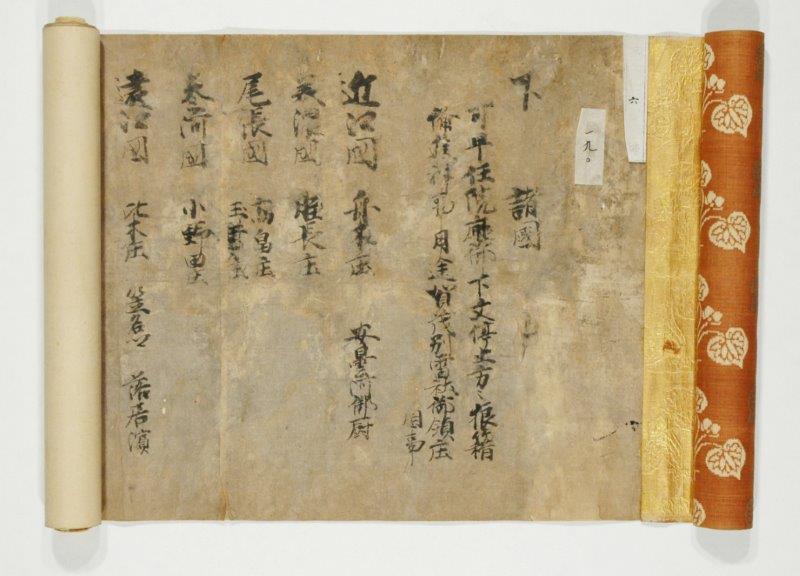 六
一九〇
下 諸國
可早任院廳御下文停止方々狼藉
備進神事用途賀茂別雷社御領庄
園事
近江國 舟木庄 安曇河御厨
美濃國 脛長庄
尾張國 高畠庄
玉井庄
参河國 小野田庄
遠江國 比木庄 笠名 落居濱